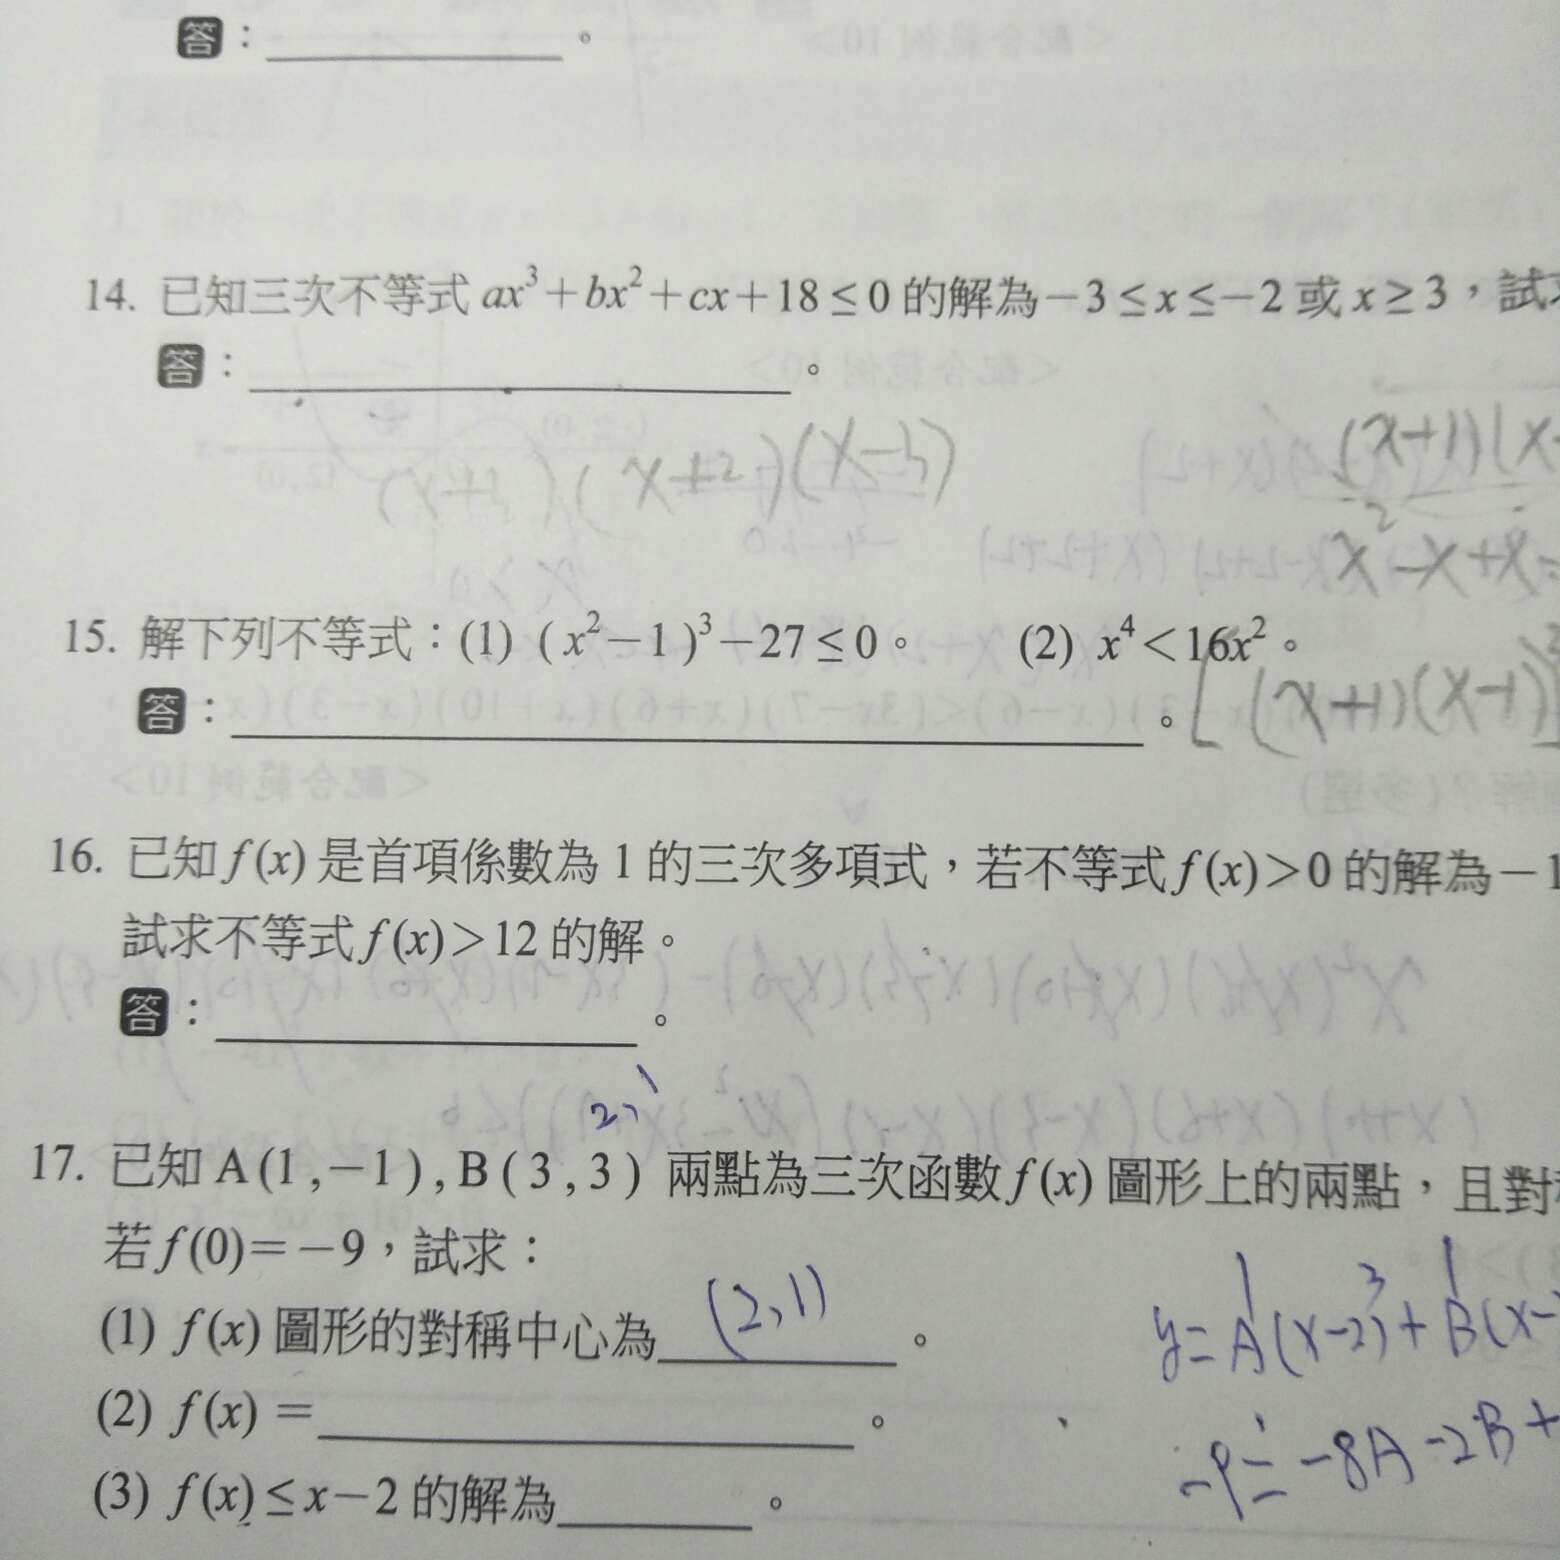 答：________。
14. 已知三次不等式 ax³+bx²+cx+18≤0 的解為 -3≤x≤-2 或 x≥3，試
答：________。
(x+3)(x+2)(x-3)
(x+1)(x
x²-x+x
15. 解下列不等式：(1) (x²-1)³-27≤0。 (2) x⁴<16x²。
答：________。
[(x+1)(x-1)]³
16. 已知 f(x) 是首項係數為 1 的三次多項式，若不等式 f(x)>0 的解為 -1
試求不等式 f(x)>12 的解。
答：________。
2,1
17. 已知 A(1,-1),B(3,3) 兩點為三次函數 f(x) 圖形上的兩點，且對
若 f(0)=-9，試求：
(1) f(x) 圖形的對稱中心為 (2,1)。
y=A(x-2)³+B(x-
(2) f(x)=________。
-9=-8A-2B+
(3) f(x)≤x-2 的解為________。